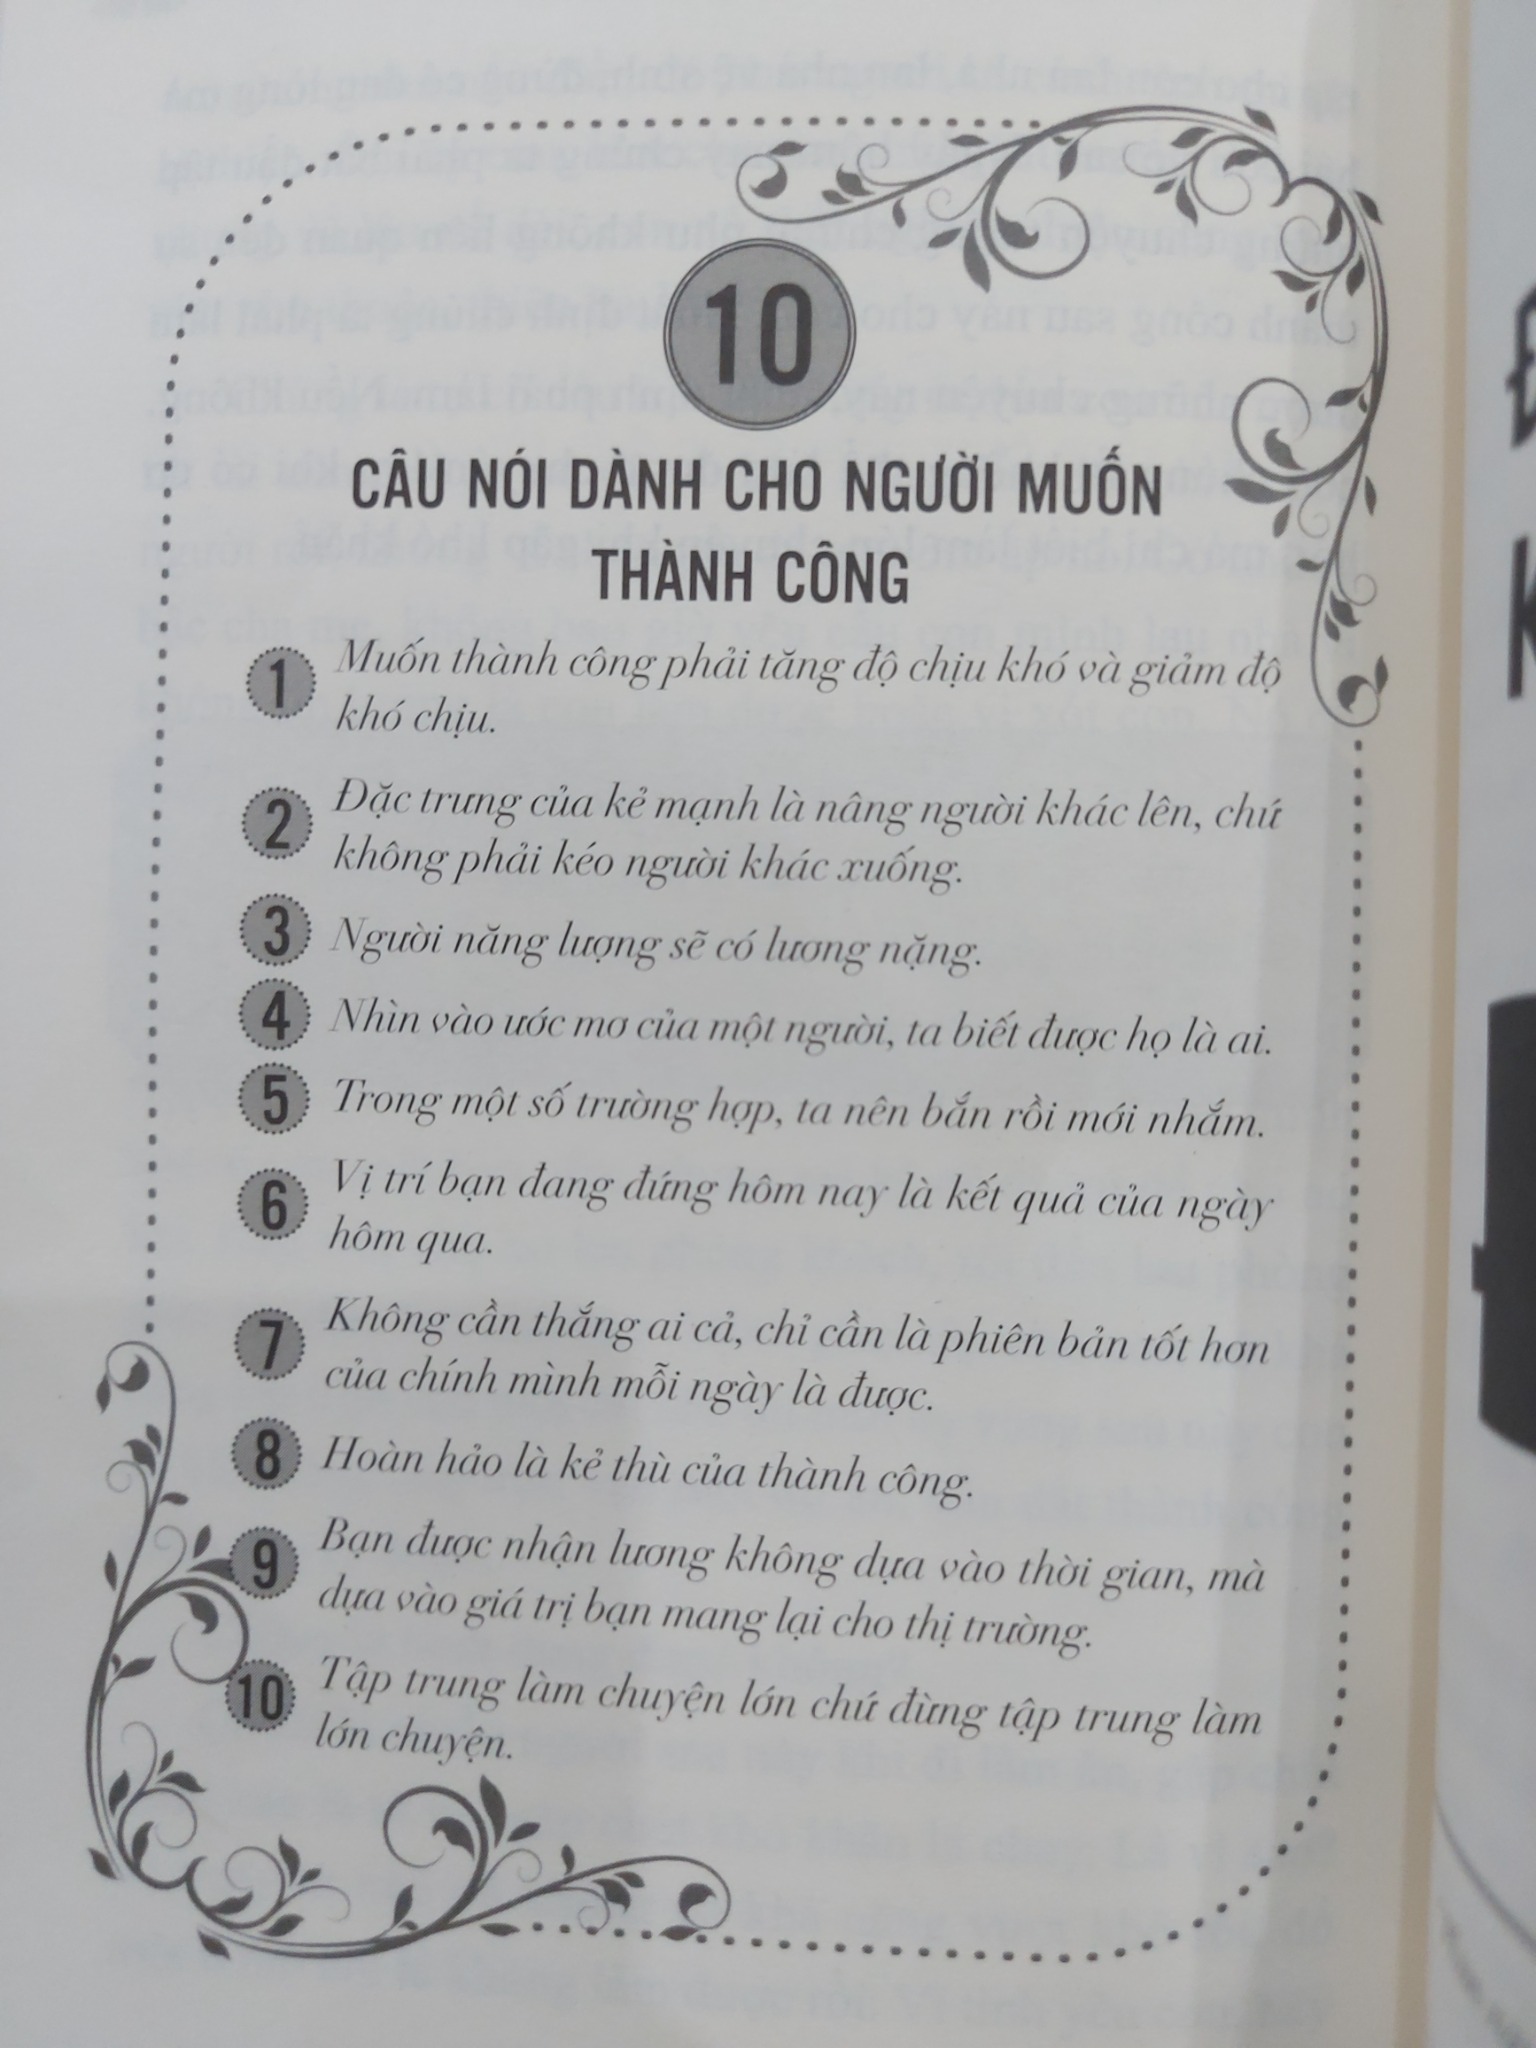 10
CÂU NÓI DÀNH CHO NGƯỜI MUỐN
THÀNH CÔNG
1 Muốn thành công phải tăng độ chịu khó và giảm độ
khó chịu.
2 Đặc trưng của kẻ mạnh là nâng người khác lên, chứ
không phải kéo người khác xuống.
3 Người năng lượng sẽ có lương nặng.
4 Nhìn vào ước mơ của một người, ta biết được họ là ai.
5 Trong một số trường hợp, ta nên bắn rồi mới nhắm.
6 Vị trí bạn đang đứng hôm nay là kết quả của ngày
hôm qua.
7 Không cần thắng ai cả, chỉ cần là phiên bản tốt hơn
của chính mình mỗi ngày là được.
8 Hoàn hảo là kẻ thù của thành công.
9 Bạn được nhận lương không dựa vào thời gian, mà
dựa vào giá trị bạn mang lại cho thị trường.
10 Tập trung làm chuyện lớn chứ đừng tập trung làm
lớn chuyện.